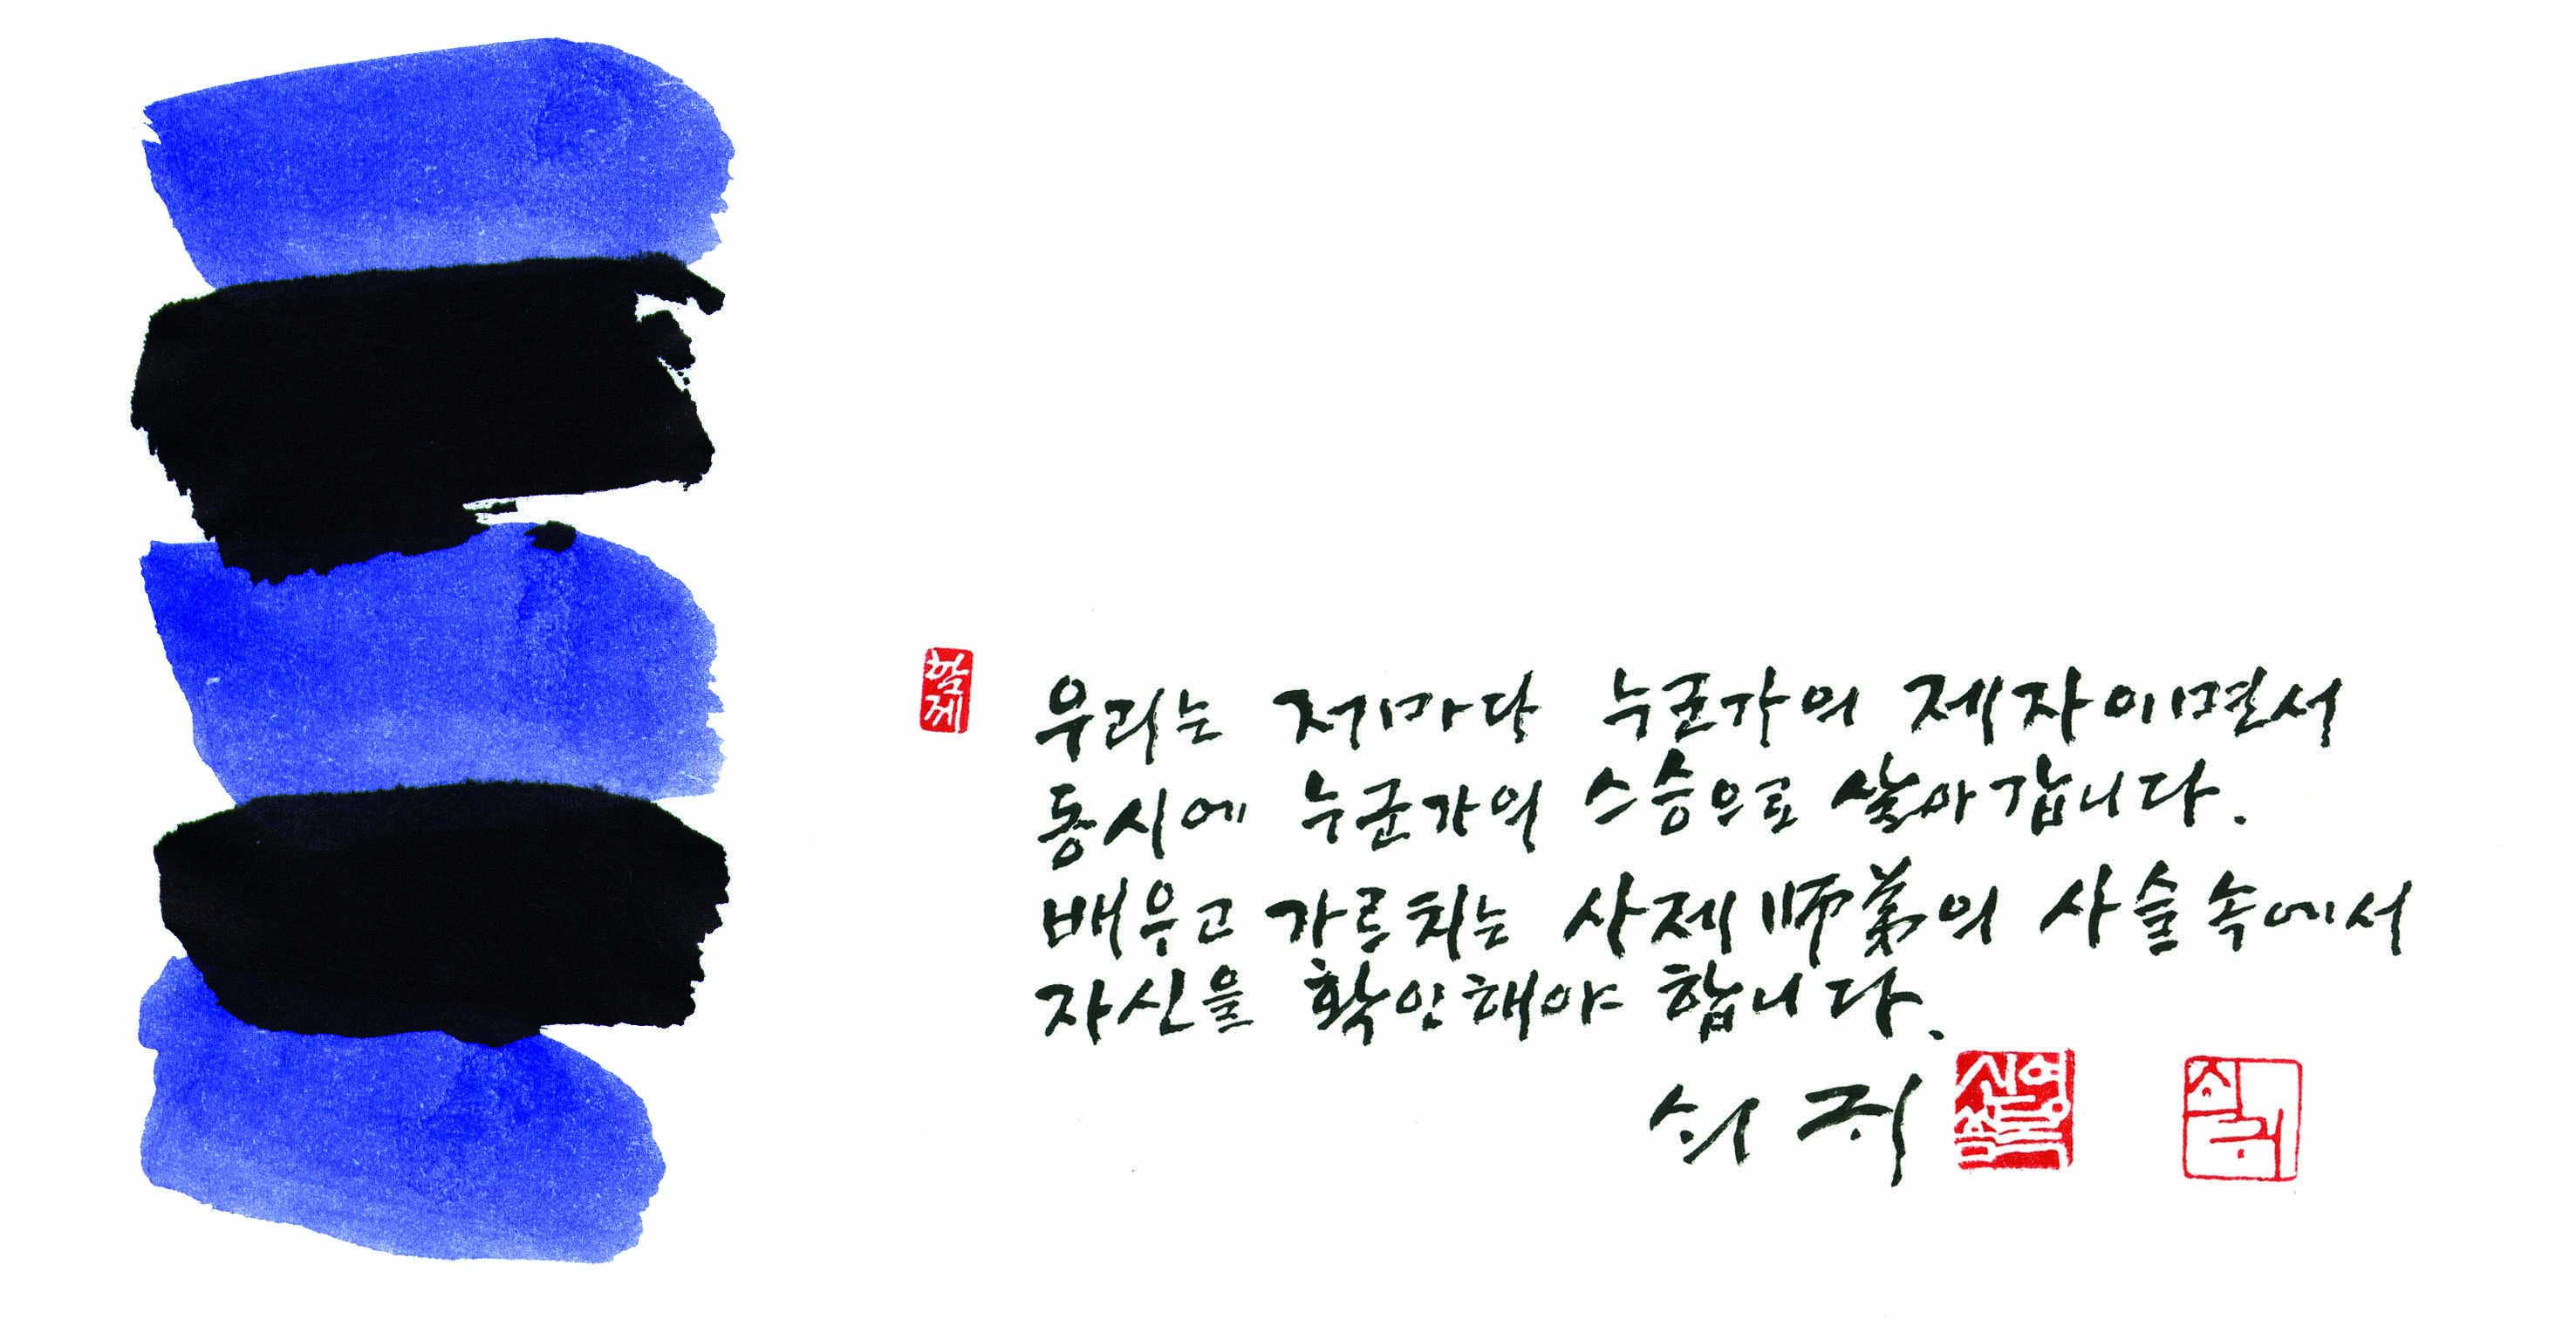 함께
우리는 저마다 누군가의 제자이면서
동시에 누군가의 스승으로 살아갑니다.
배우고 가르치는 사제師弟의 사슬 속에서
자신을 확인해야 합니다.
쇠귀
신영